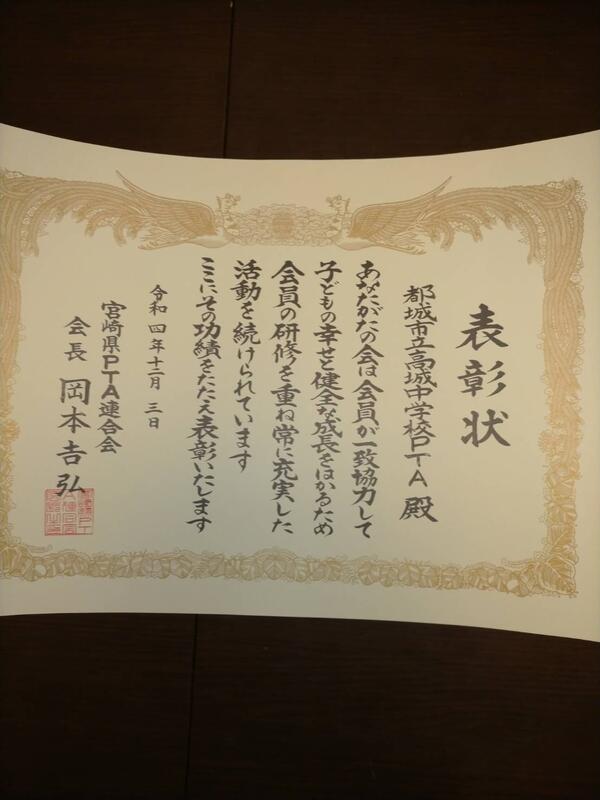 表彰状
都城市立高城中学校PTA 殿
あなたがたの会は会員が一致協力して
子どもの幸せと健全な成長をはかるため
会員の研修を重ね常に充実した
活動を続けられています
ここにその功績をたたえ表彰いたします
令和四年十二月三日
宮崎県PTA連合会
会長 岡本吉弘